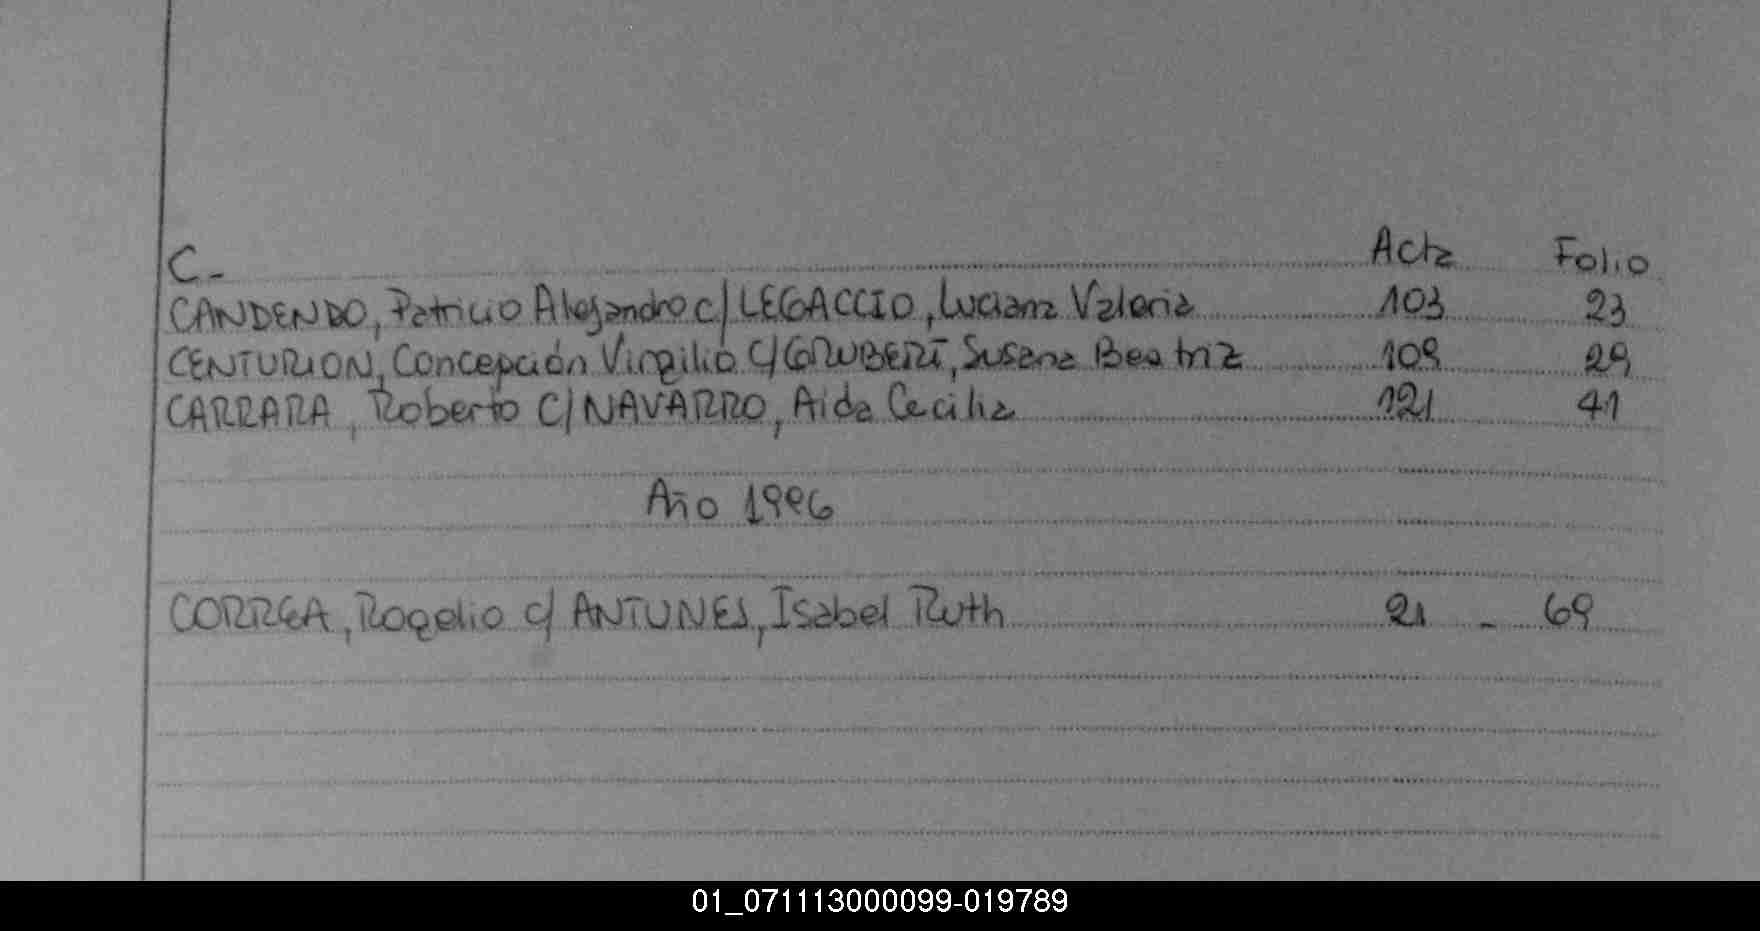 C- Acta Folio
CANDENDO, Patricio Alejandro c/ LEGACCIO, Luciana Valeria 103 23
CENTURION, Concepción Virgilio c/ Susana Beatriz 109 29
CARRARA, Roberto C/ NAVARRO, Aida Cecilia 121 41
Año 1996
CORREA, Rogelio c/ ANTUNES, Isabel Ruth 21 - 69
01_071113000099-019789